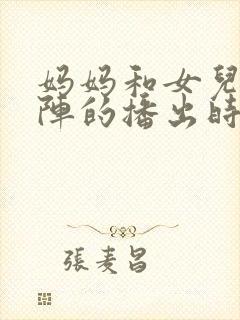 妈妈和女兒
陣的播出時
張麦昌